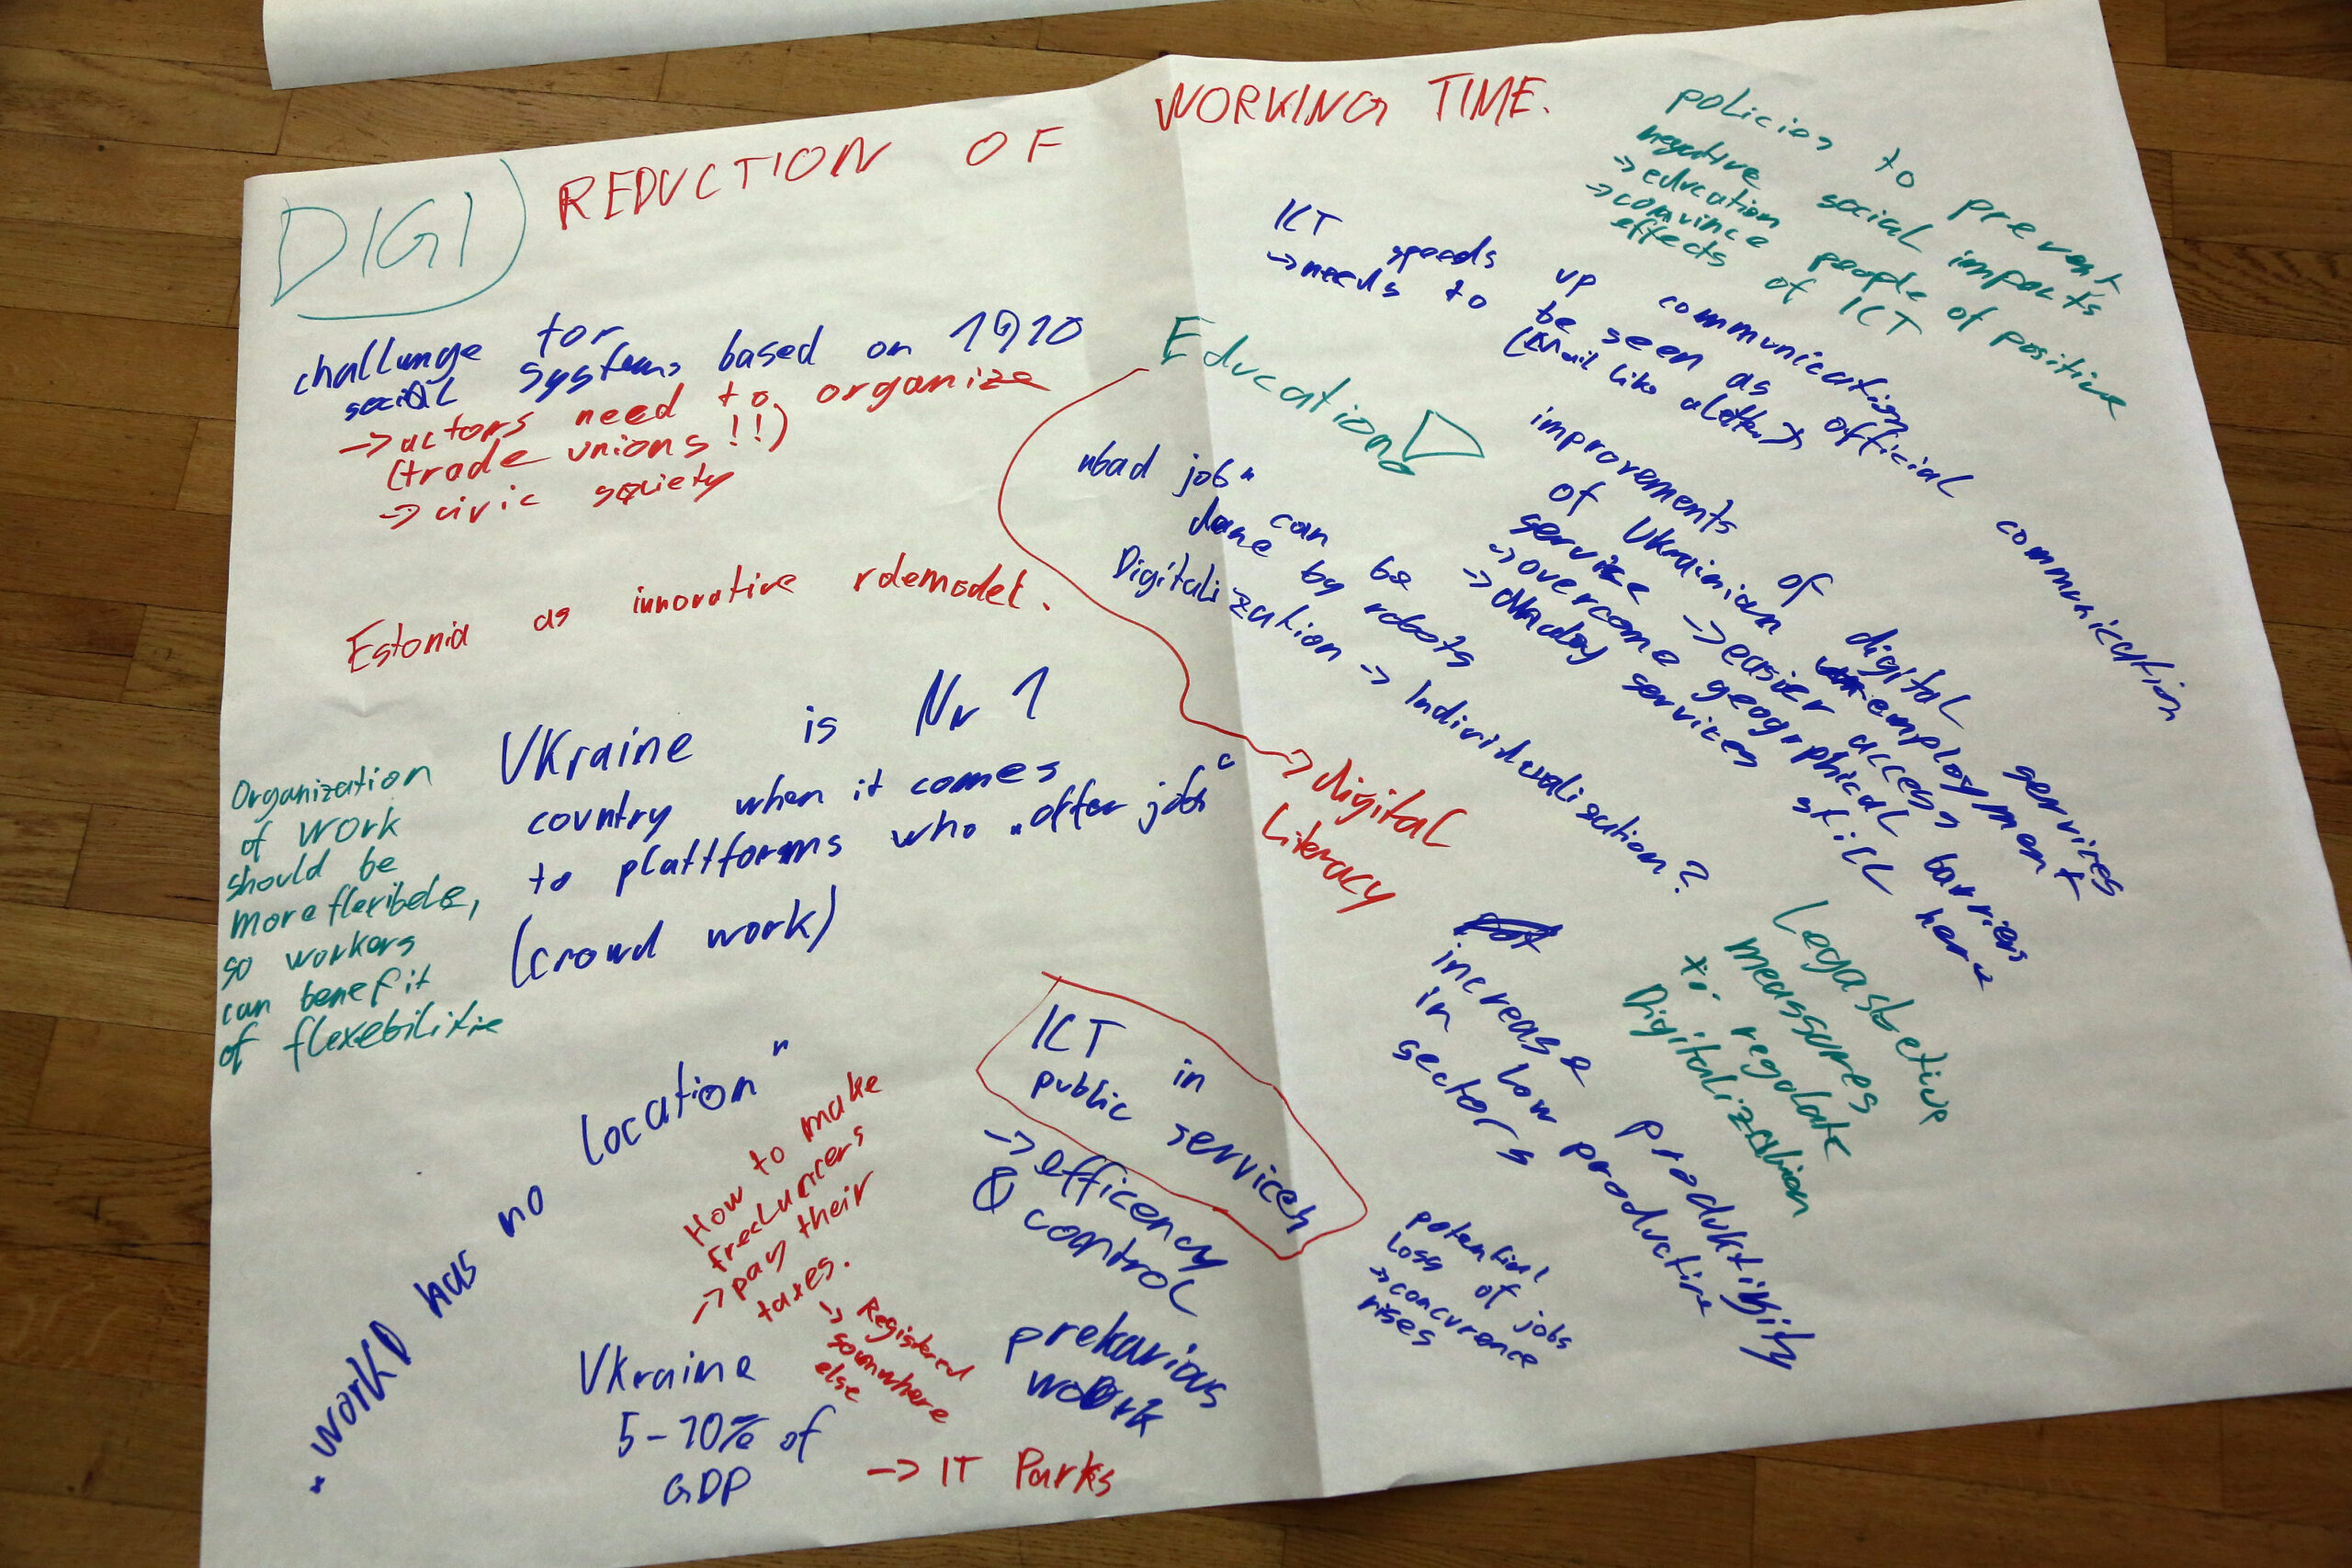 DIGI
REDUCTION OF WORKING TIME.
challange for
social systems based on 1910
-> actors need to organize
(trade unions!!)
-> civic society
Estonia as innovative rolemodel.
Ukraine is Nr 1
country when it comes
to plattforms who "offer job"
(crowd work)
Organization
of work
should be
more flexibele,
so workers
can benefit
of flexebilitie
"work has no location"
How to make
freelancers
-> pay their
taxes.
-> Registered
somwhere
else
Ukraine
5-10% of
GDP
-> IT Parks
ICT in
public services
-> efficency
& control
prekarious
work
policies to prevent
negative social impacts
-> education
-> convince people of positive
effects of ICT
ICT speeds up communication
-> needs to be seen as official communication
(Mail like a letter)
Education
-> digital
Literacy
"bad job" can be
done by robots
Digitalization -> Individualization?
improvements of digital services
of Ukrainian employment
service -> easier access
-> overcome geographical barriers
services still here
increase produktivity
in low productive
sectors
measures
regulate
Digitalization
potential
loss of jobs
-> concurence
rises